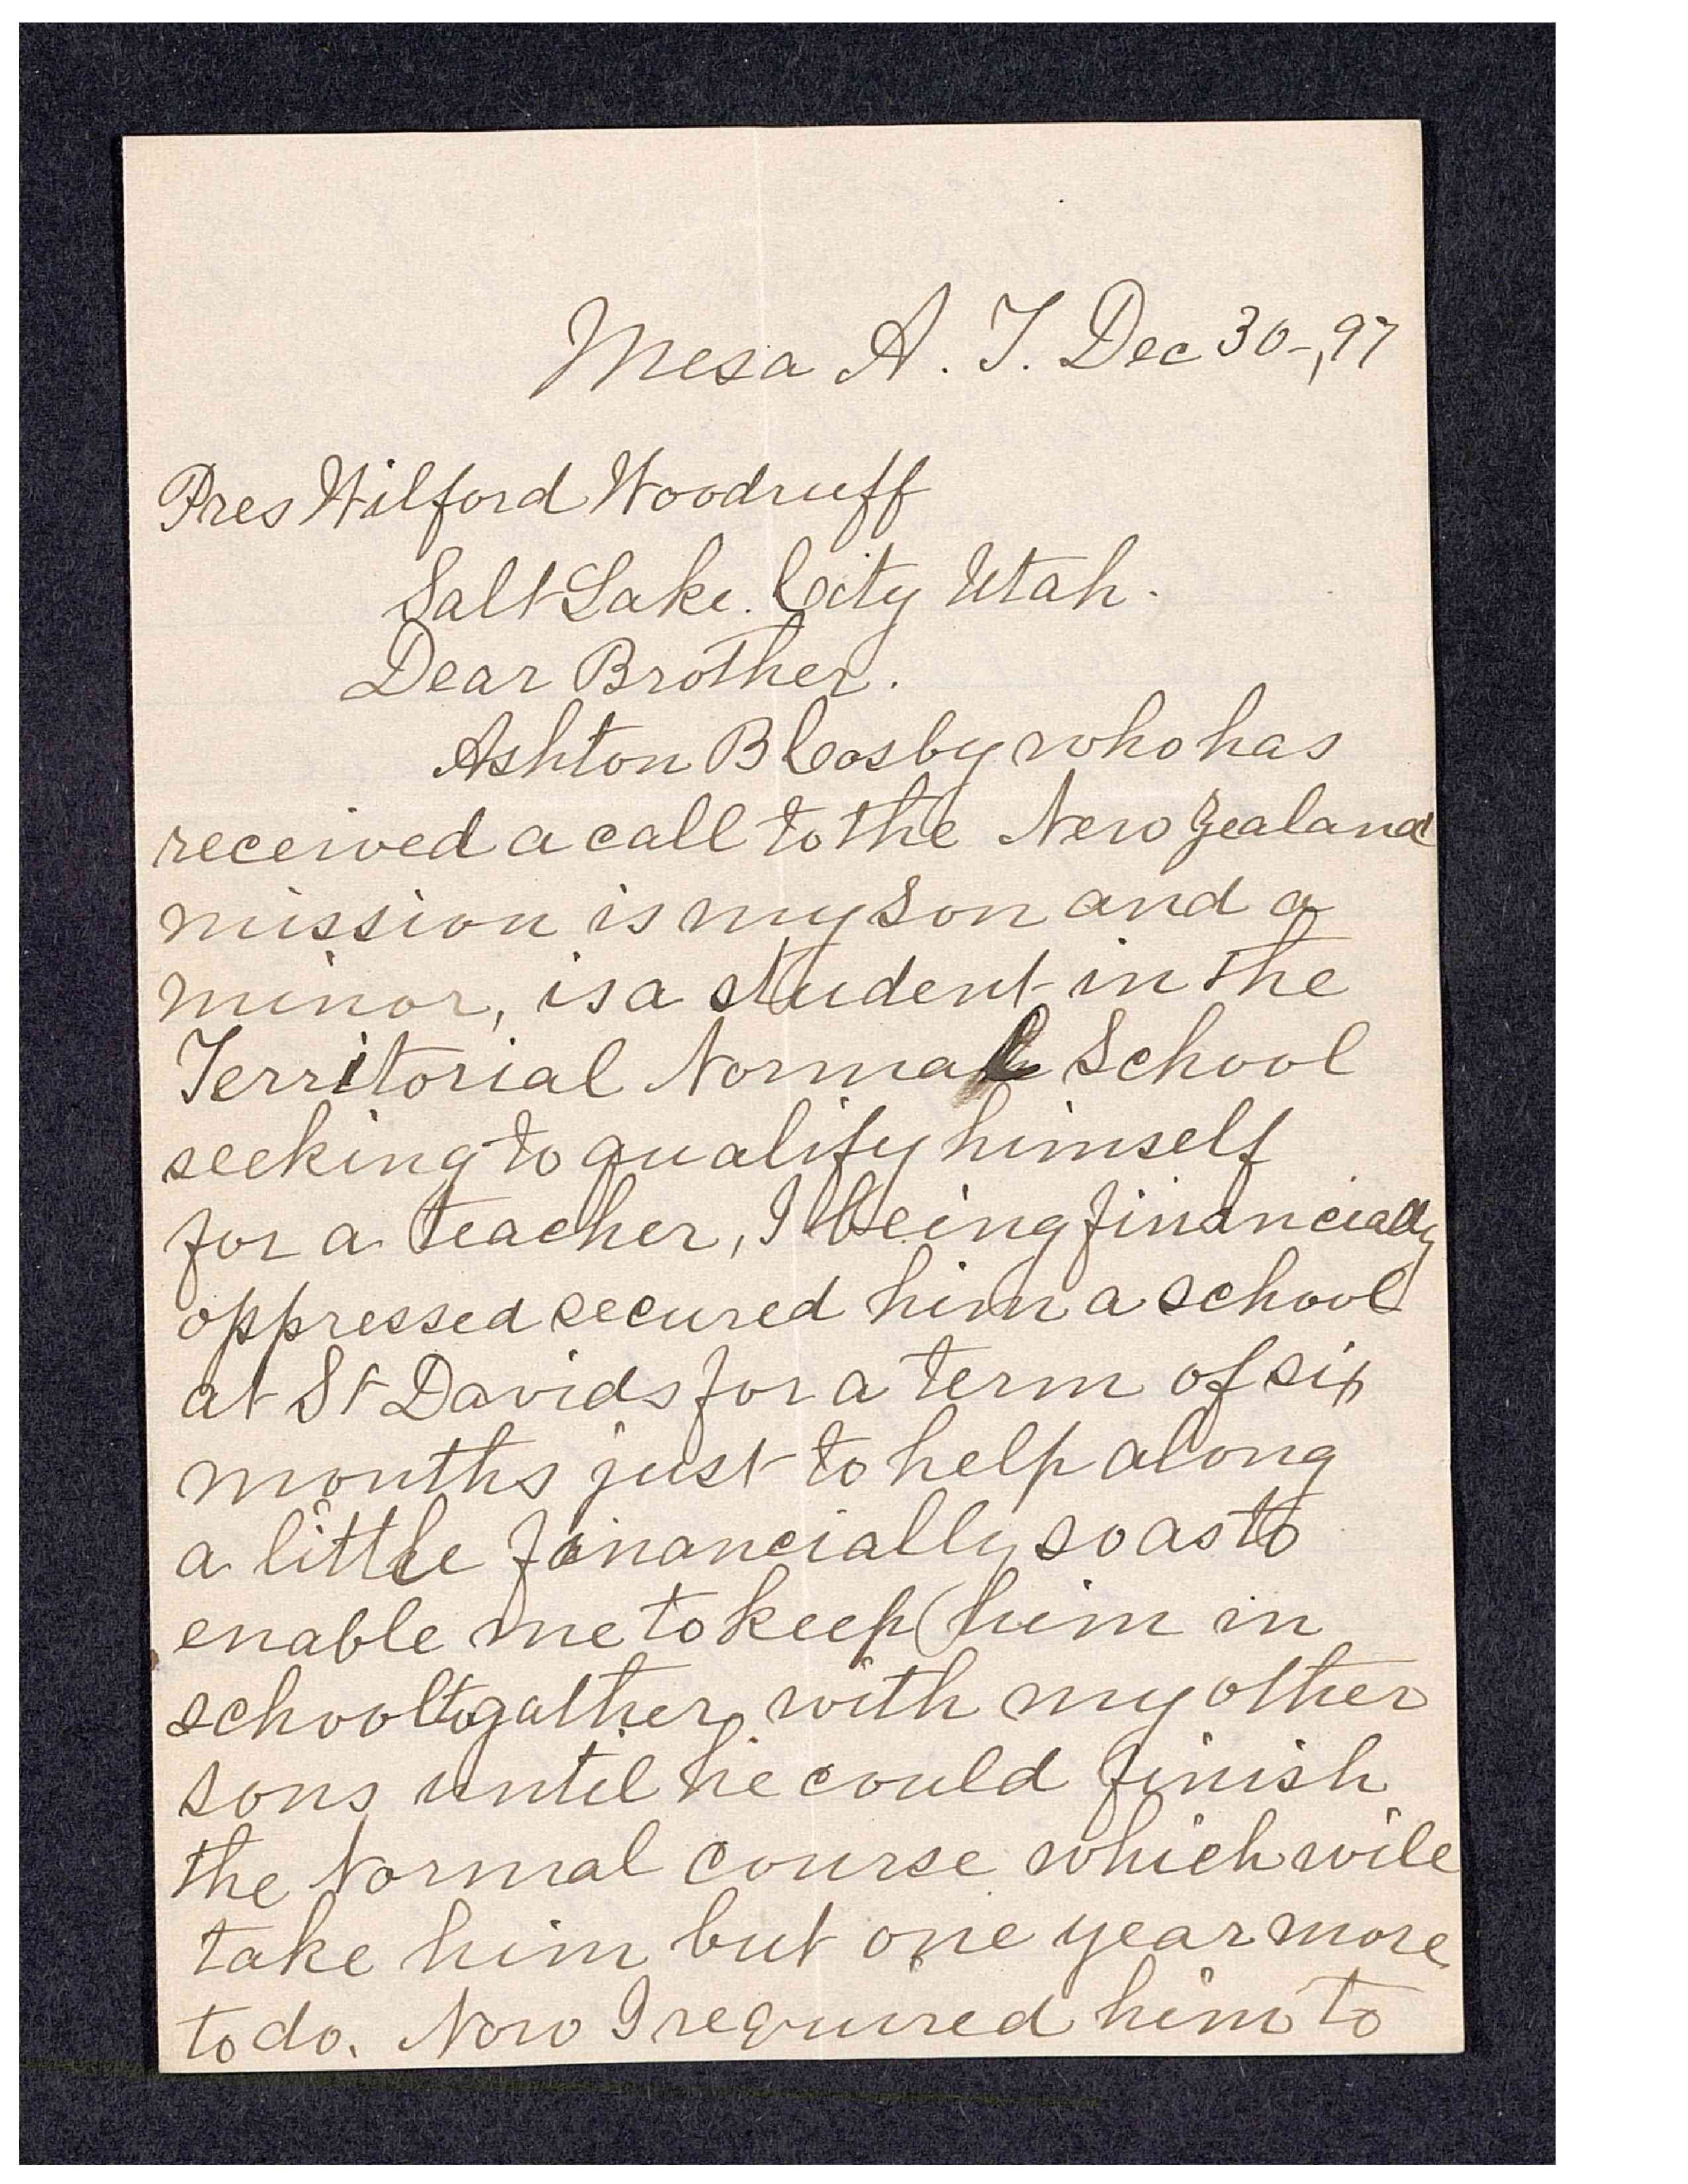 Mesa A. T. Dec 30-, 97
Pres Wilford Woodruff
Salt Lake. City Utah.
Dear Brother.
Ashton B Cosby who has
received a call to the New Zealand
mission is my son and a
minor, is a student in the
Territorial Normal School
seeking to qualify himself
for a teacher, I being financially
oppressed secured him a school
at St Davids for a term of six
months just to help along
a little financially so as to
enable me to keep him in
school togather with my other
sons until he could finish
the Normal course which will
take him but one year more
to do. Now I required him to